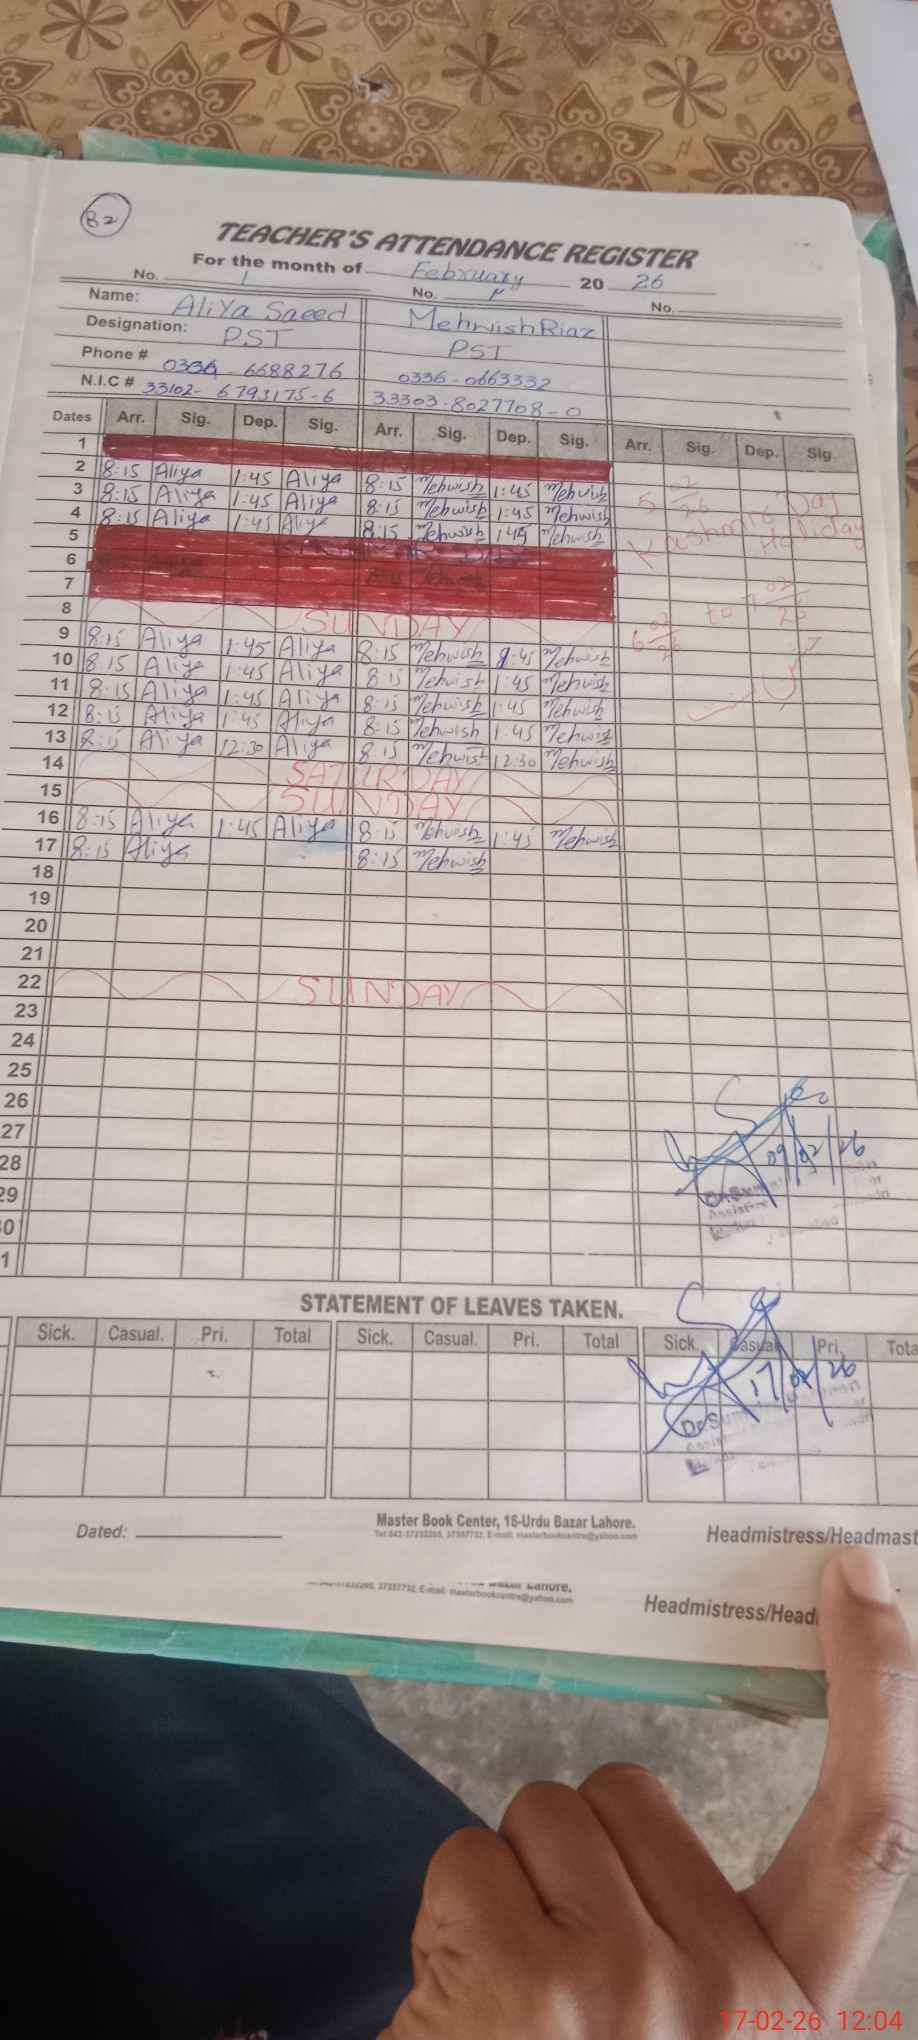 B2
TEACHER'S ATTENDANCE REGISTER
For the month of February 20 26
No. 1 No. No.
Name: Aliya Saeed Mehwish Riaz
Designation: PST PST
Phone # 0336-6688276 0336-0663332
N.I.C # 33102-6793175-6 33303-8027708-0
Dates Arr. Sig. Dep. Sig. Arr. Sig. Dep. Sig. Arr. Sig. Dep. Sig.
1
2 8:15 Aliya 1:45 Aliya 8:15 Mehwish 1:45 Mehwish
3 8:15 Aliya 1:45 Aliya 8:15 Mehwish 1:45 Mehwish
4 8:15 Aliya 1:45 Aliya 8:15 Mehwish 1:45 Mehwish
5 5 02/26 Kashmire Day Holiday
6
7
8 SUNDAY 6 02/26 to 7 02/26
9 8:15 Aliya 1:45 Aliya 8:15 Mehwish 1:45 Mehwish
10 8:15 Aliya 1:45 Aliya 8:15 Mehwish 1:45 Mehwish
11 8:15 Aliya 1:45 Aliya 8:15 Mehwish 1:45 Mehwish
12 8:15 Aliya 1:45 Aliya 8:15 Mehwish 1:45 Mehwish
13 8:15 Aliya 12:30 Aliya 8:15 Mehwish 12:30 Mehwish
14 SATURDAY
15 SUNDAY
16 8:15 Aliya 1:45 Aliya 8:15 Mehwish 1:45 Mehwish
17 8:15 Aliya 8:15 Mehwish
18
19
20
21
22 SUNDAY
23
24
25
26
27
28 09/02/26
29
30
1
STATEMENT OF LEAVES TAKEN.
Sick. Casual. Pri. Total Sick. Casual. Pri. Total Sick. Casual Pri. Tota
17/02/26
Master Book Center, 16-Urdu Bazar Lahore.
Dated: Headmistress/Headmast
Headmistress/Head
17-02-26 12:04